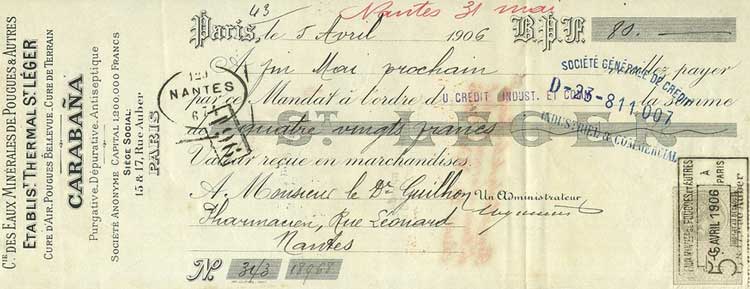 Cie. DES EAUX MINÉRALES DE POUGUES & AUTRES
ETABLISt. THERMAL St. LÉGER
CURE D'AIR. POUGUES BELLEVUE. CURE DE TERRAIN
CARABAÑA
Purgative. Dépurative. Antiseptique
SOCIÉTÉ ANONYME CAPITAL 1.200.000 FRANCS
SIÈGE SOCIAL
15 & 17, Rue Auber
PARIS
43
Nantes 31 mai
Paris, le 5 Avril 1906 B.P.F. 80.-
fin Mai prochain payer
par ce Mandat à l'ordre d U CRÉDIT INDUST. ET COM la Somme
de quatre vingts francs
ST LÉGER
Valeur reçue en marchandises.
A Monsieur le Dr. Guilhon Un Administrateur
Pharmacien, Rue Léonard
Nantes
No 343 18968
NANTES
SOCIÉTÉ GÉNÉRALE DE CRÉDIT
INDUSTRIEL & COMMERCIAL
EAUX MINÉRALES POUGUES ET AUTRES
5 AVRIL 1906
A PARIS
Rue Auber